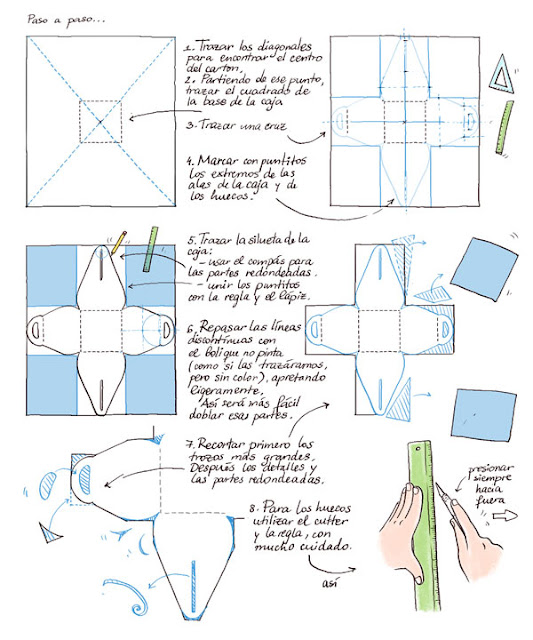 Paso a paso...
1. Trazar los diagonales
para encontrar el centro
del carton,
2. Partiendo de ese punto,
trazar el cuadrado de
la base de la caja
3. Trazar una cruz
4. Marcar con puntitos
los extremos de las
alas de la caja y de
los huecos.
5. Trazar la silueta de la
caja:
- usar el compás para
las partes redondeadas.
- unir los puntitos
con la regla y el lápiz.
6. Repasar las líneas
discontinuas con
el boli que no pinta
(como si las trazáramos,
pero sin color), apretando
ligeramente,
Así será más fácil
doblar esas partes.
7. Recortar primero los
trozos más grandes.
Después los detalles y
las partes redondeadas.
8. Para los huecos
utilizar el cutter
y la regla, con
mucho cuidado.
así
presionar
siempre
hacia
fuera